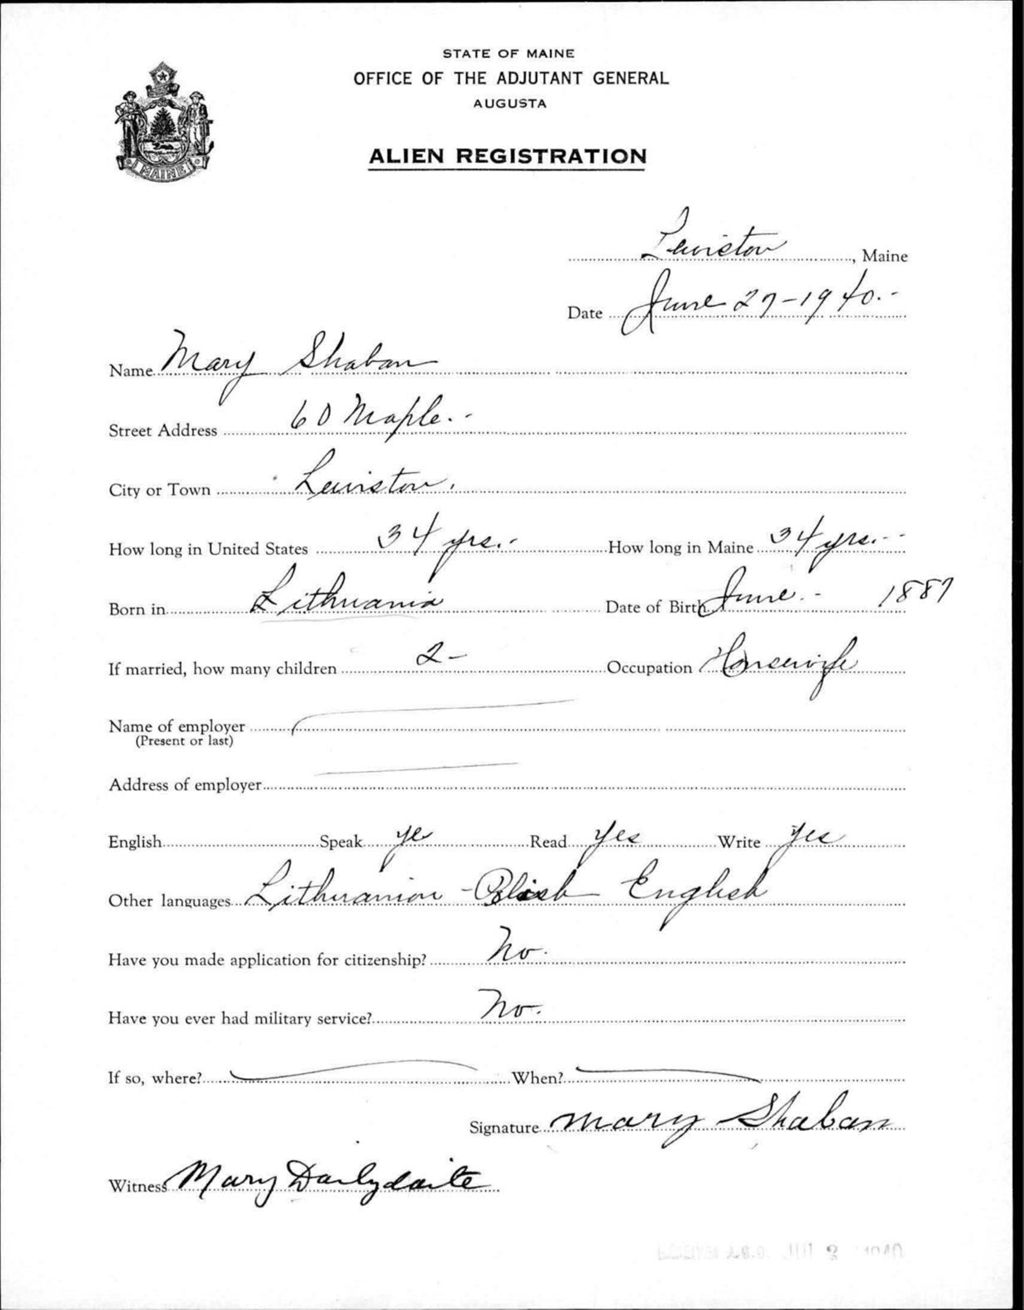 STATE OF MAINE
OFFICE OF THE ADJUTANT GENERAL
AUGUSTA
MAINE
ALIEN REGISTRATION
Lewiston, Maine
Date June 27-1940.-
Name Mary Shaban
Street Address 60 Maple.-
City or Town Lewiston.
How long in United States 34 yrs.- How long in Maine 34 yrs.-
Born in Lithuania Date of Birth June.- 1887
If married, how many children 2- Occupation Housewife
Name of employer
(Present or last)
Address of employer
English Speak ye Read Yes Write Yes
Other languages Lithuanian - Polish English
Have you made application for citizenship? No.
Have you ever had military service? No.
If so, where? When?
Signature Mary Shaban
Witness Mary
A.G.O. JUL 2 1940